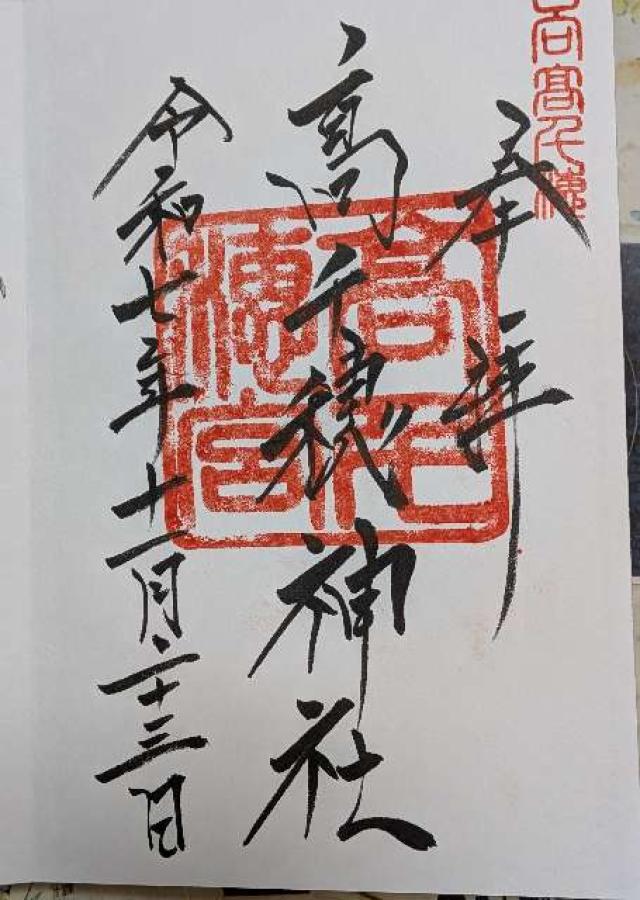 奉拝
高千穂神社
令和七年十一月二十三日
高千穂宮
高千穂